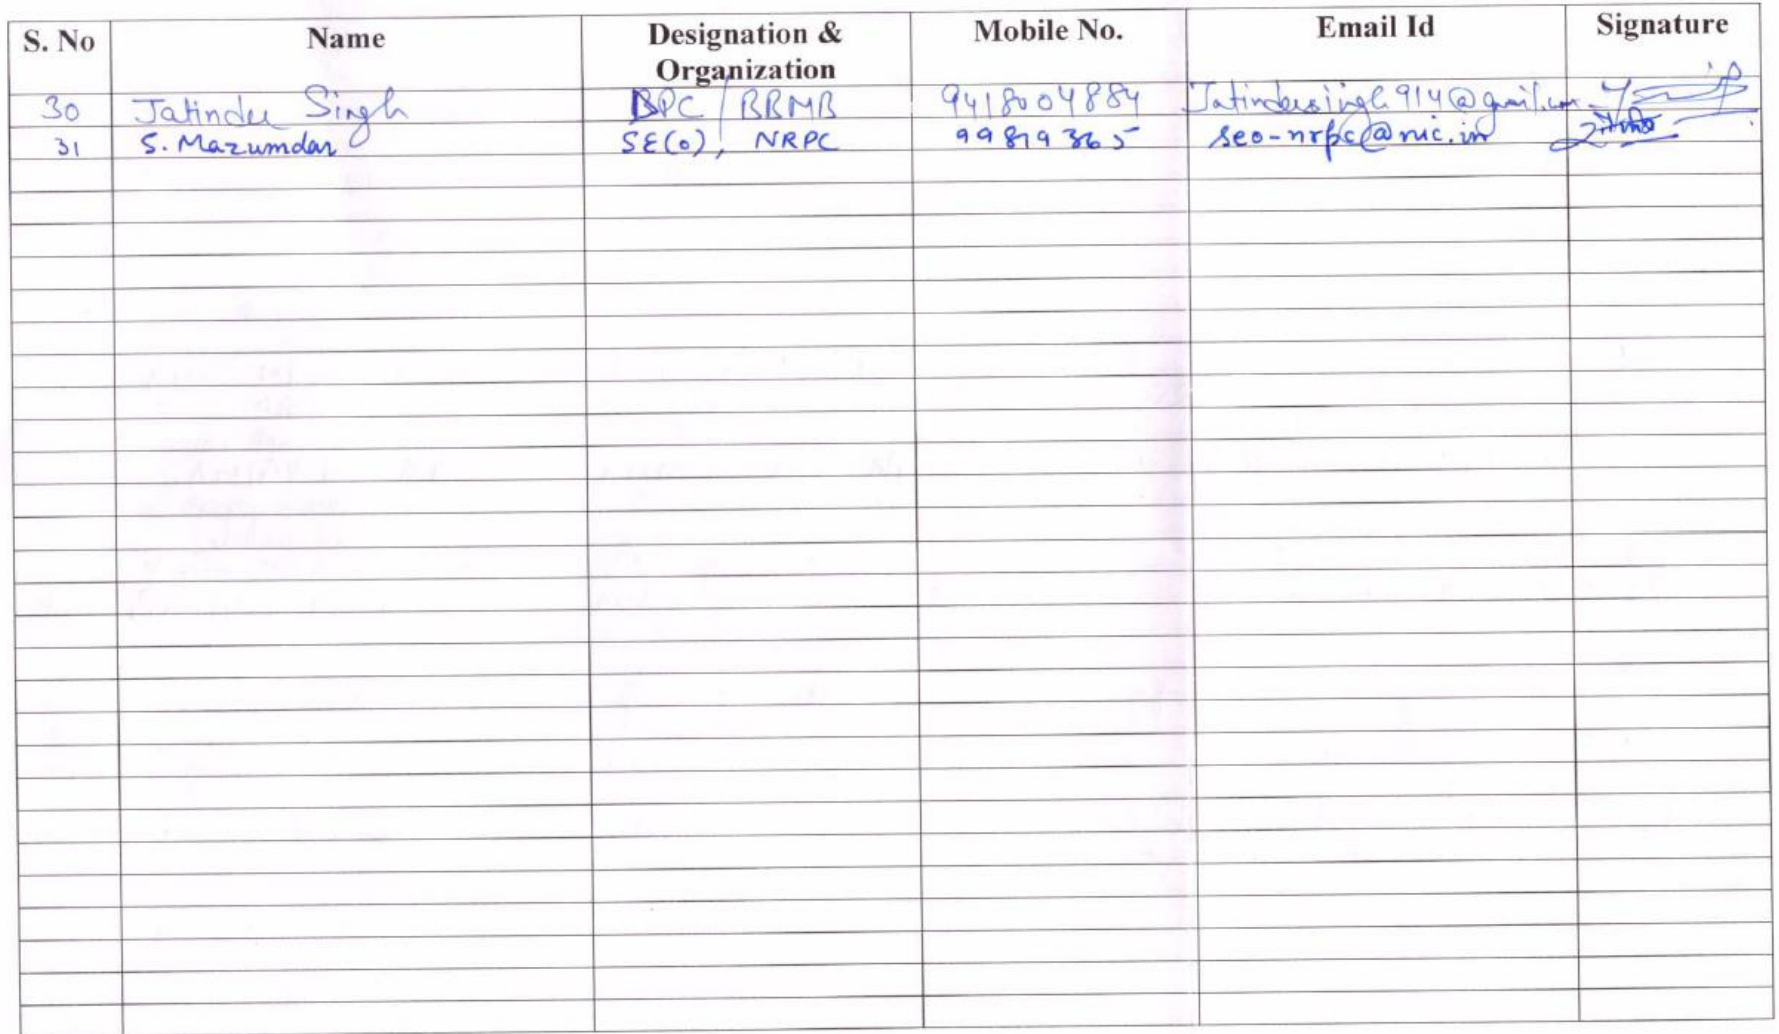 S. No Name Designation & Organization Mobile No. Email Id Signature
30 Jatinder Singh DPC / BBMB 9418004884 Jatindersingh914@gmail.com
31 S. Mazumdar SE(O), NRPC seo-nrpc@nic.in